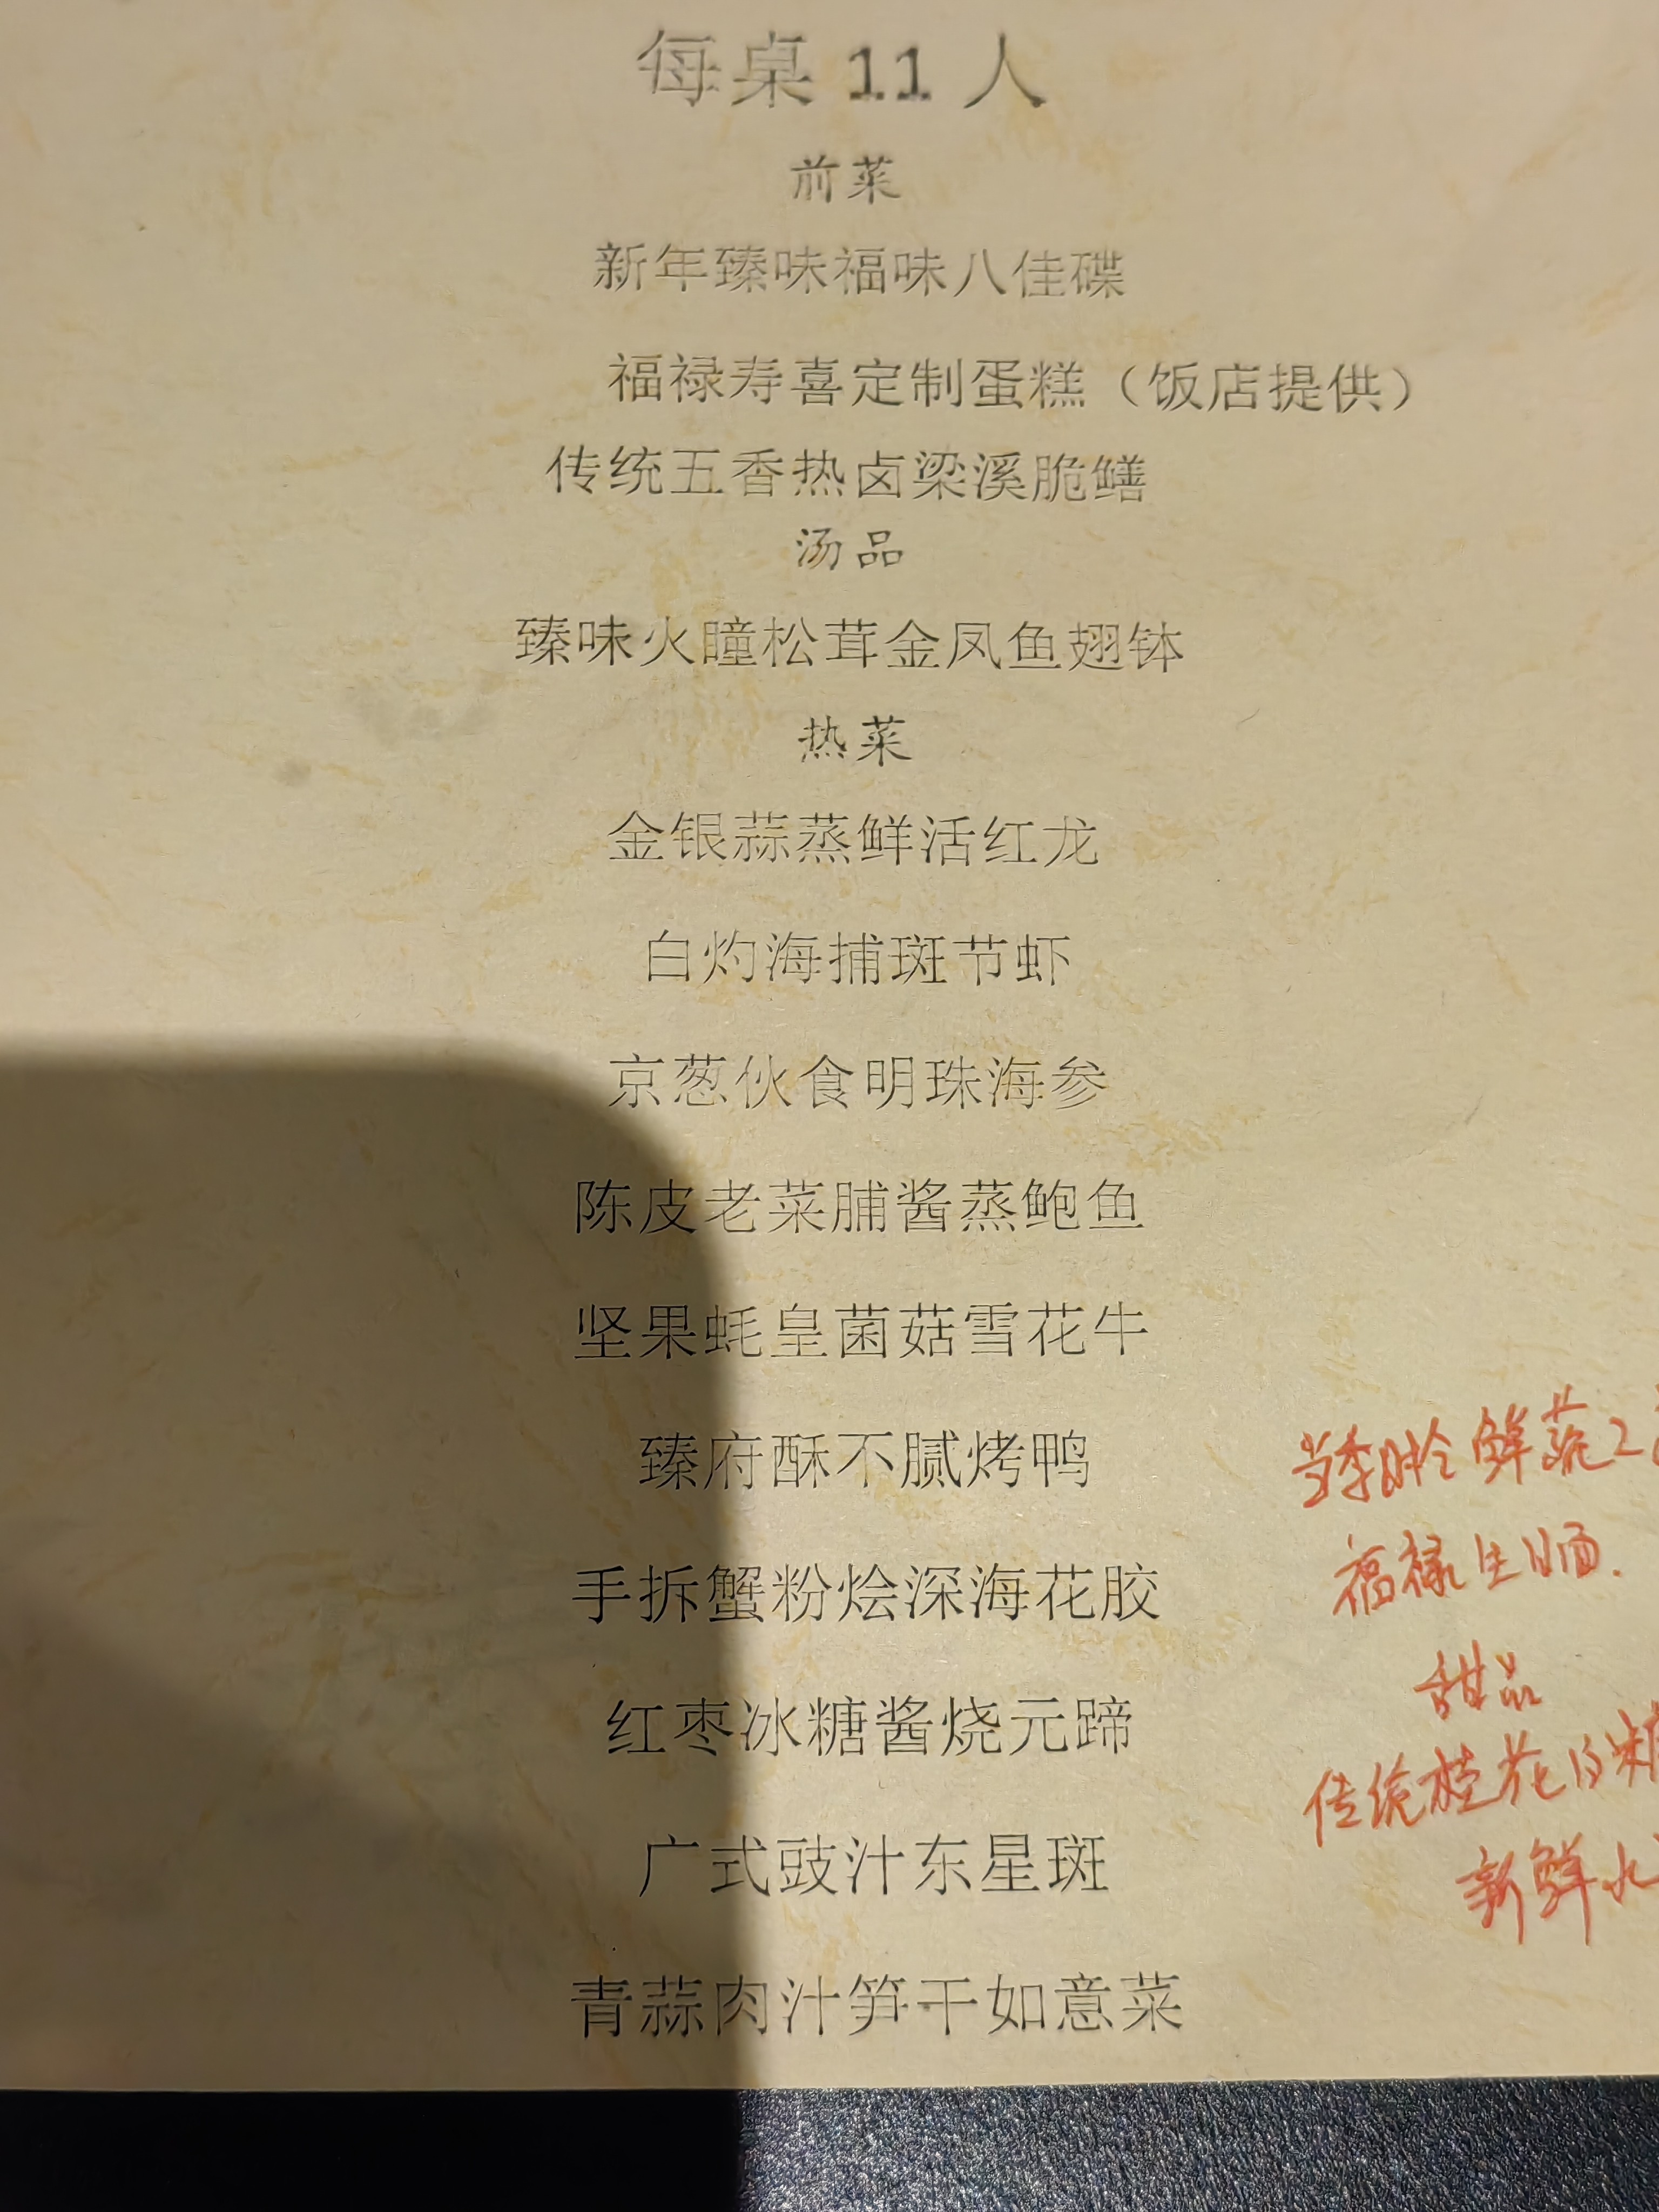 每桌 11 人
前菜
新年臻味福味八佳碟
福禄寿喜定制蛋糕（饭店提供）
传统五香热卤梁溪脆鳝
汤品
臻味火瞳松茸金凤鱼翅钵
热菜
金银蒜蒸鲜活红龙
白灼海捕斑节虾
京葱伙食明珠海参
陈皮老菜脯酱蒸鲍鱼
坚果蚝皇菌菇雪花牛
臻府酥不腻烤鸭
手拆蟹粉烩深海花胶
红枣冰糖酱烧元蹄
广式豉汁东星斑
青蒜肉汁笋干如意菜
当季时令鲜蔬2
福禄生日面.
甜品
传统桂花
新鲜水